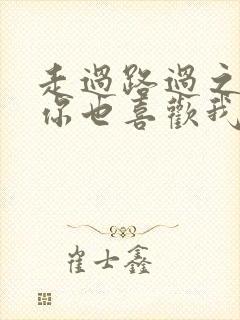 走過路過之
你也喜歡我
崔士鑫